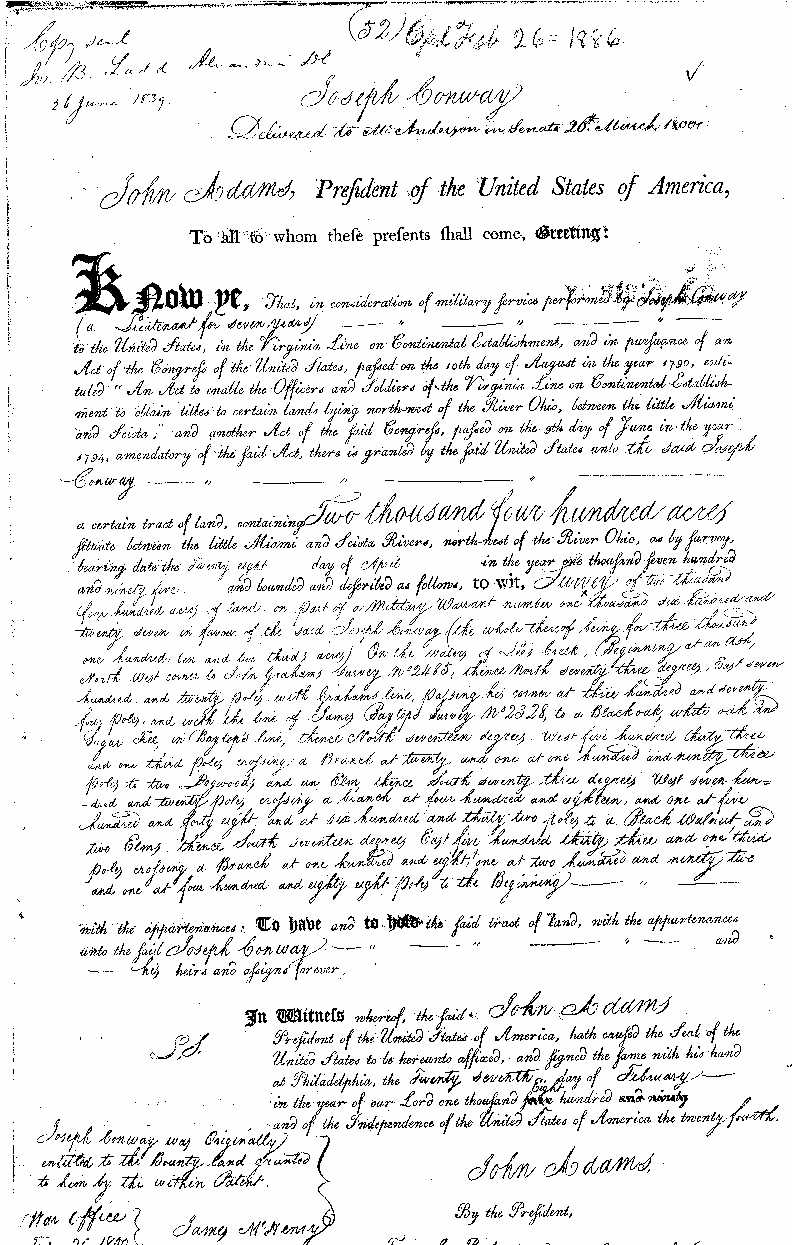 (52) Feb 26 = 1886
Copy send
Jn. B. Ladd
26 June 1839.
Joseph Conway
Delivered to Mr. Anderson in Senate 26th March, 1800.
John Adams, Preſident of the United States of America,
To all to whom theſe preſents ſhall come, Greeting:
Know ye, That, in conſideration of military ſervice performed by Joseph Conway
(a Lieutenant for seven years)
to the United States, in the Virginia Line on Continental Eſtabliſhment, and in purſuance of an
Act of the Congreſs of the United States, paſſed on the 10th day of Auguſt in the year 1790, enti-
tuled " An Act to enable the Officers and Soldiers of the Virginia Line on Continental Eſtabliſh-
ment to obtain titles to certain lands lying north-weſt of the River Ohio, between the little Miami
and Sciota;" and another Act of the ſaid Congreſs, paſſed on the 9th day of June in the year
1794, amendatory of the ſaid Act, there is granted by the ſaid United States unto the said Joseph
Conway
a certain tract of land, containing Two thousand four hundred acres
ſituate between the little Miami and Sciota Rivers, north-weſt of the River Ohio, as by ſurvey,
bearing date the Twenty eight day of April in the year one thouſand ſeven hundred
and ninety five and bounded and deſcribed as follows, to wit, Survey of two thousand
four hundred acres of land on part of a Military Warrant number one thousand six hundred and
twenty seven in favour of the said Joseph Conway (the whole thereof being for three thousand
one hundred ten and two thirds acres) On the waters of Creek, Beginning at an Ash,
North West corner to John Grahams Survey No 2485, thence North seventy three degrees, East seven
hundred and twenty poles with Grahams line, passing his corner at three hundred and seventy
four poles, and with the line of James Baytop's survey No 2328, to a Black oak, white oak and
Sugar Tree, in Baytop's line, thence North seventeen degrees West five hundred thirty three
and one third poles crossing a Branch at twenty and one at one hundred and ninety three
poles to two Dogwoods and an Elm thence South seventy three degrees West seven hun=
-dred and twenty poles crossing a branch at four hundred and eighteen, and one at five
hundred and forty eight, and at six hundred and thirty two poles to a Black Walnut and
two Elms, thence South seventeen degrees East five hundred thirty three and one third
poles crossing a Branch at one hundred and eight, one at two hundred and ninety two
and one at four hundred and eighty eight poles to the Beginning
with the appurtenances: To have and to hold the ſaid tract of land, with the appurtenances
unto the ſaid Joseph Conway and
his heirs and aſſigns forever.
In Witneſs whereof, the ſaid John Adams
L.S. Preſident of the United States of America, hath cauſed the Seal of the
United States to be hereunto affixed, and ſigned the ſame with his hand
at Philadelphia, the Twenty Seventh day of February
in the year of our Lord one thouſand Eight hundred and ninety
and of the Independence of the United States of America the twenty fourth.
Joseph Conway was Originally
entitled to the Bounty land granted
to him by the within Patent.
John Adams.
War Office
James McHenry
By the Preſident,